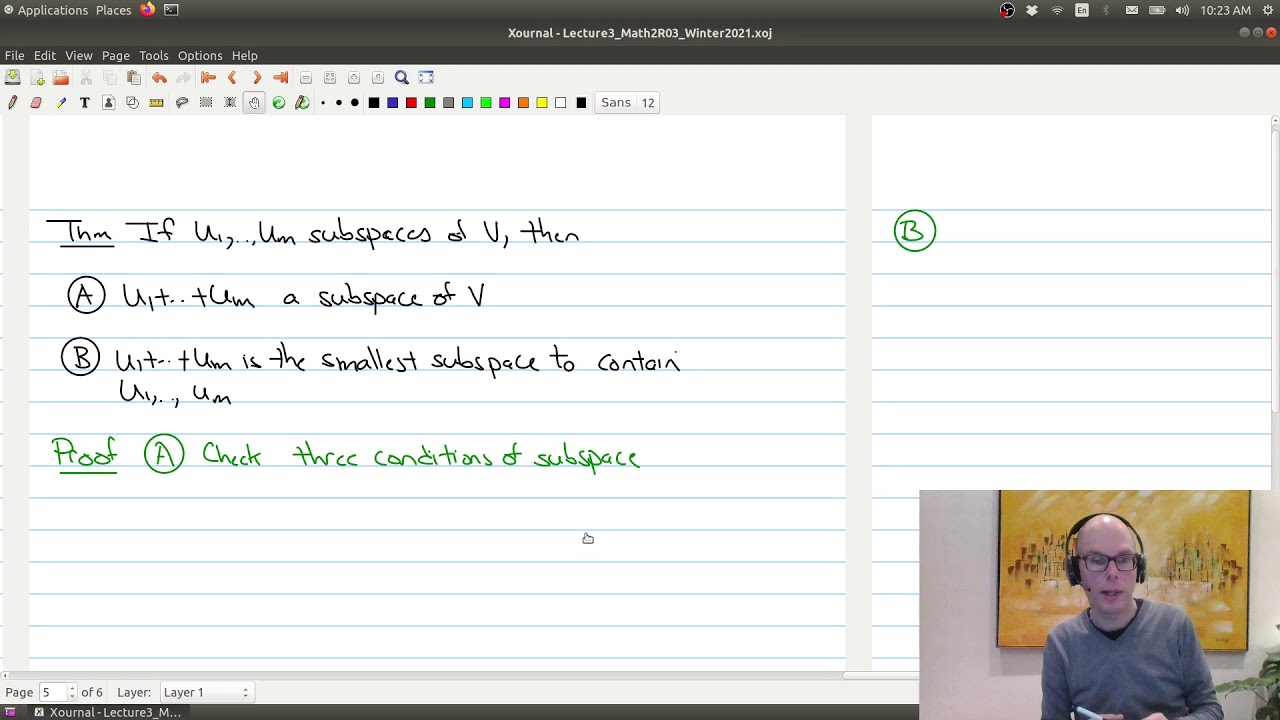 Applications Places
En
10:23 AM
Xournal - Lecture3_Math2R03_Winter2021.xoj
File Edit View Page Tools Options Help
T
Sans 12
Thm If U1,..,Um subspaces of V, then
A U1+..+Um a subspace of V
B U1+..+Um is the smallest subspace to contain
U1,.., Um
Proof A Check three conditions of subspace
B
Page 5 of 6 Layer: Layer 1
Xournal - Lecture3_M...